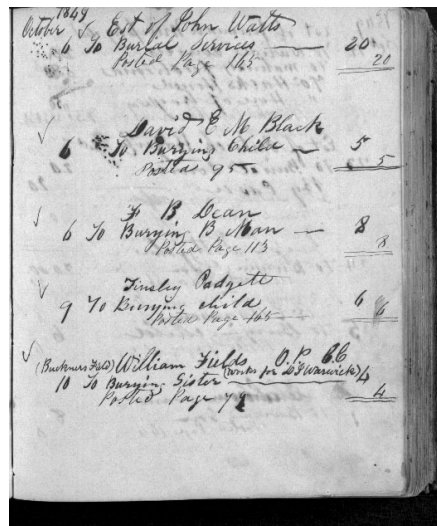 October 1849 √ Est of John Watts
6 To Burial Services — 20
Posted Page 165 20
√ David E M Black
6 To Burying Child — 5
Posted 95 5
√ F B Dean
6 To Burying B. Man — 8
Posted Page 113 8
√ Tinsley Padgett
9 To Burying child 6
Posted Page 165 6
√ (Buckners Field) William Fields O.P.
10 To Burying Sister (works for Warwick) 4
Posted Page 79 4